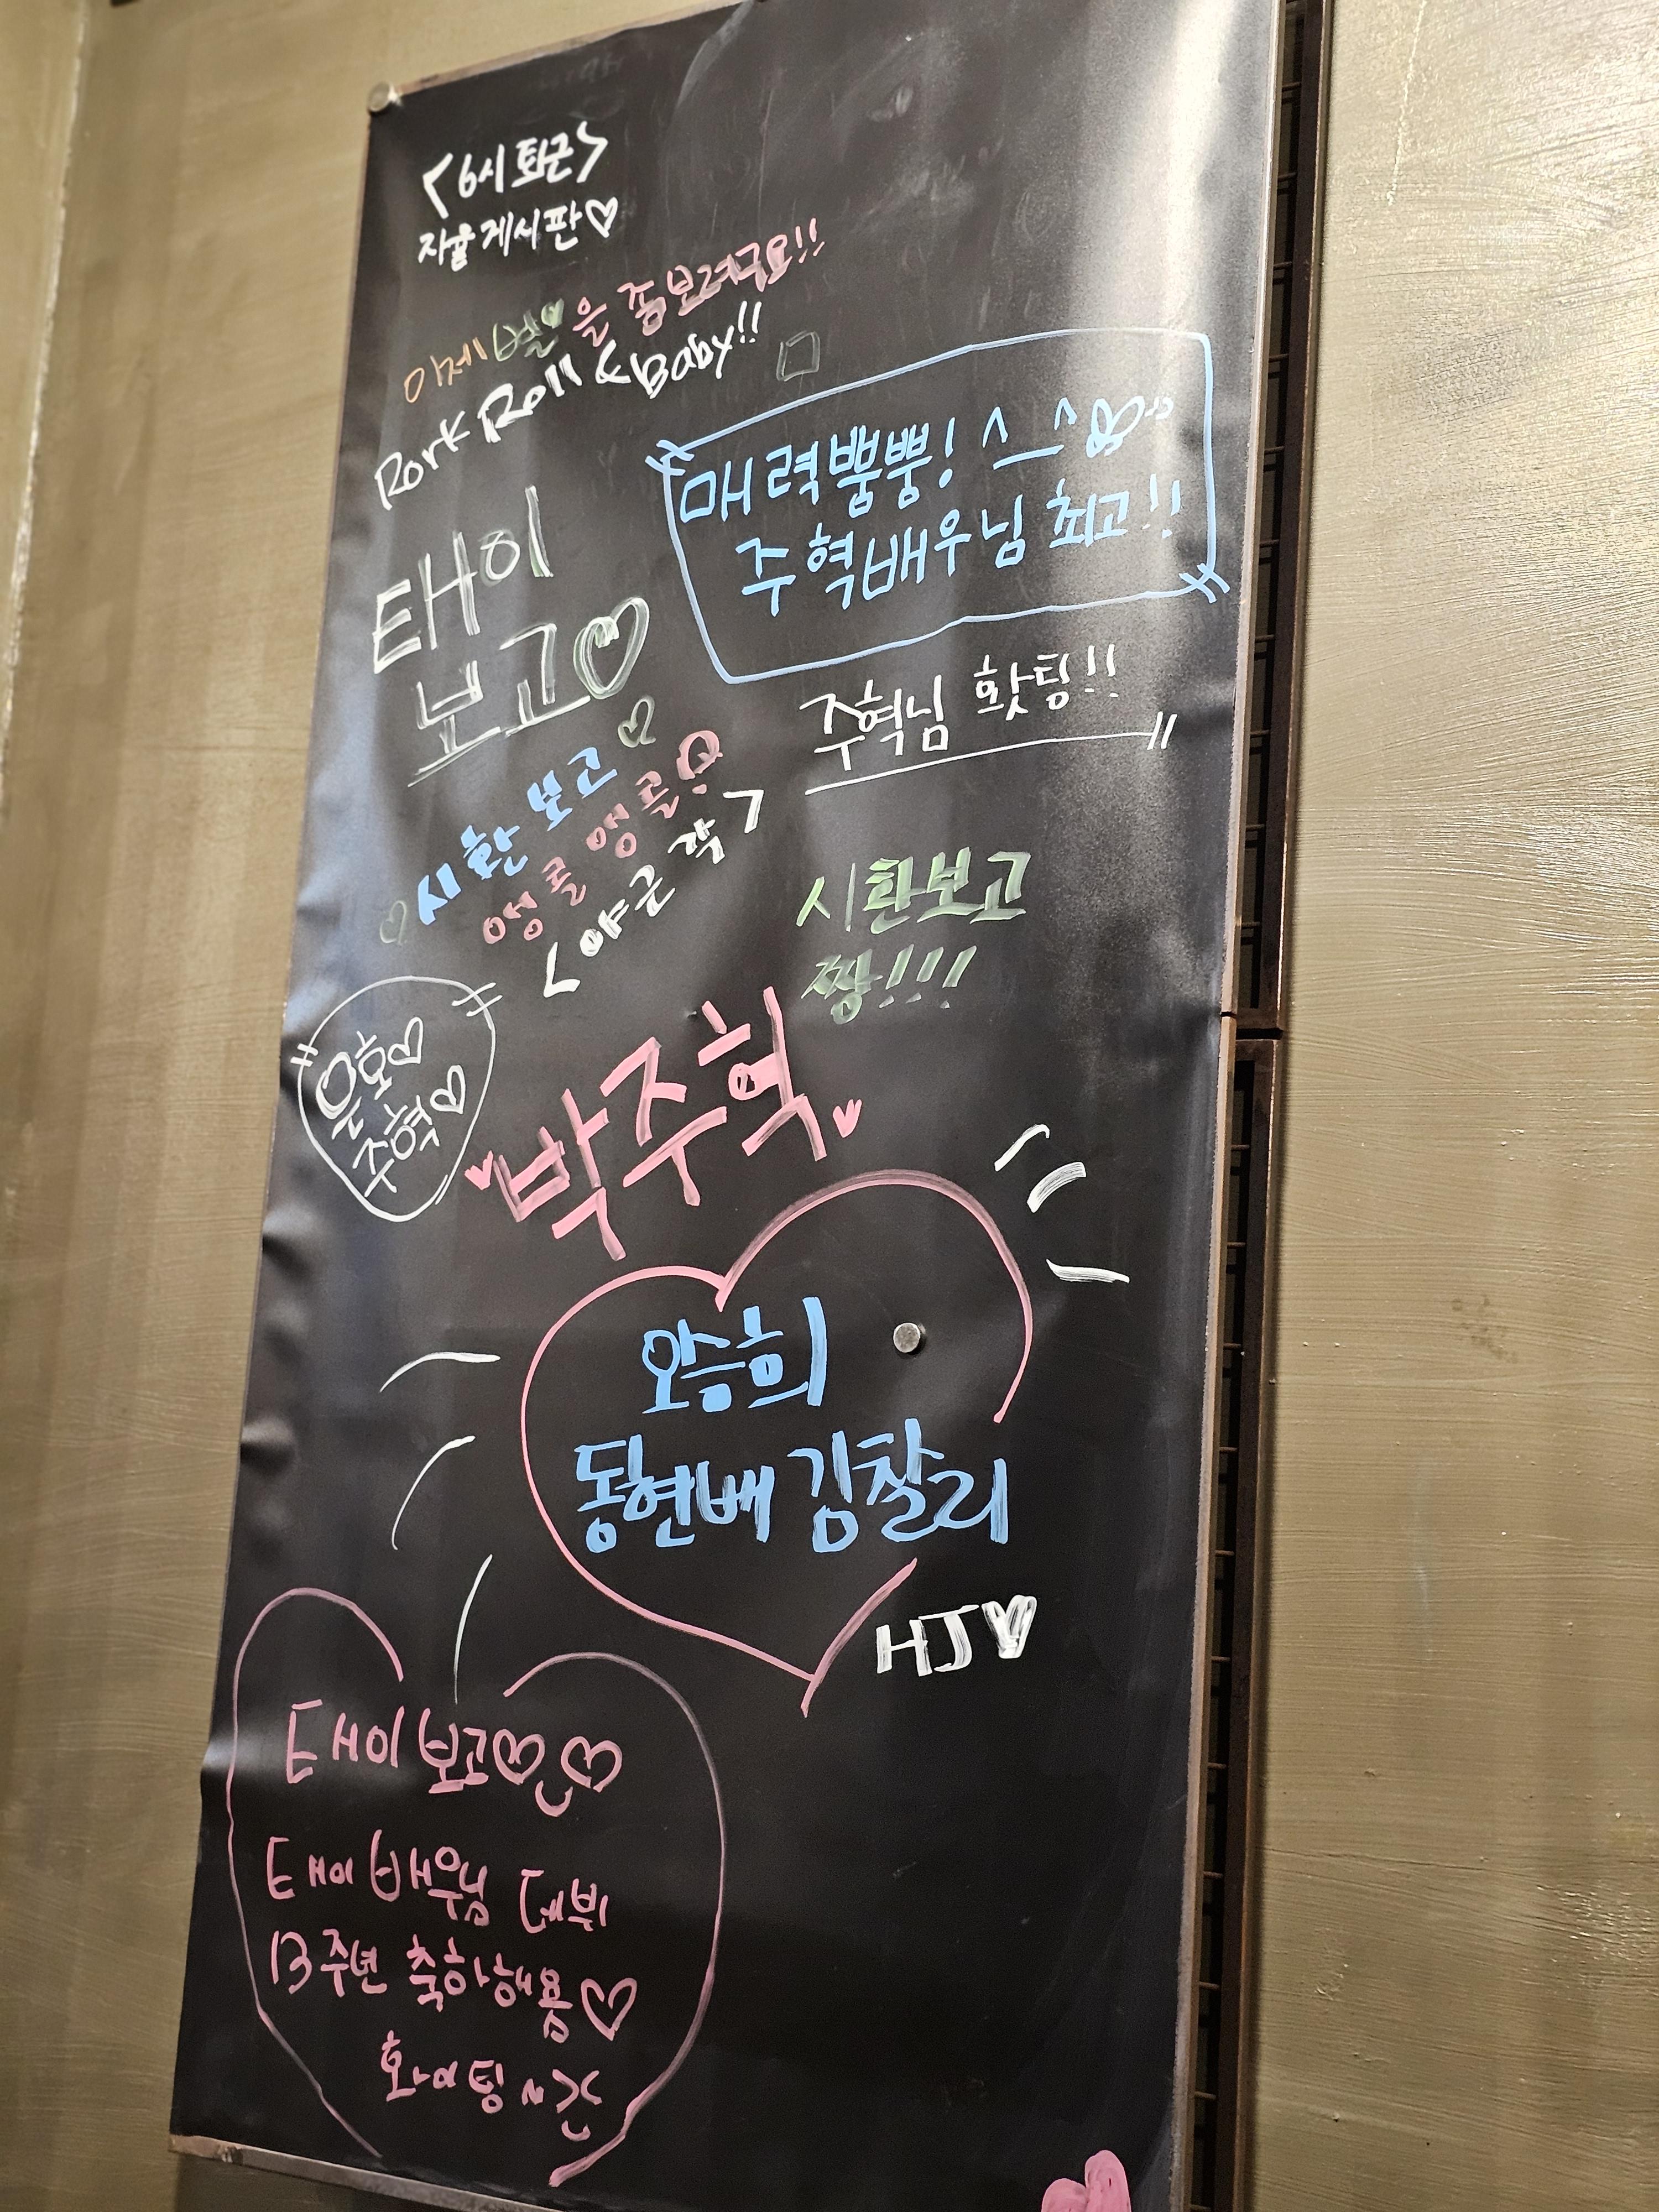 <6시 퇴근>
자율 게시판♡
이제 별을 좀 보려구요!!
Rork Roll & Baby!!
매력뿜뿜! ^_^
주혁배우님 최고!!
태이
보고♡
주혁님 홧팅!!
♡시환 보고♡
앵콜 앵콜
<야근 각>
시환보고
짱!!!
은호♡
주혁♡
♥박주혁♥
오승희
동현배 김찰리
HJ♥
태이 보고♡♡
태이 배우님 데뷔
13주년 축하해용♡
화이팅~><